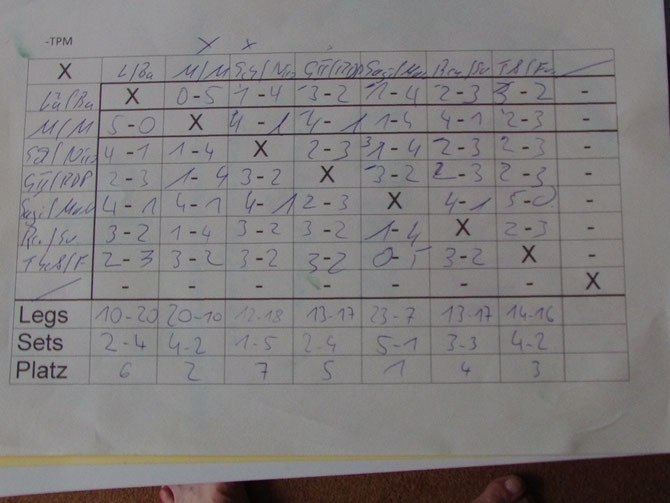 -TPM
X X
X L/Ba M/M Sch/Nic
Lu/Ba X 0-5 1-4 3-2 1-4 2-3 3-2 -
M/M 5-0 X 4-1 4-1 1-4 4-1 2-3 -
4-1 1-4 X 2-3 1-4 2-3 2-3 -
2-3 1-4 3-2 X 3-2 2-3 2-3 -
4-1 4-1 4-1 2-3 X 4-1 5-0 -
3-2 1-4 3-2 3-2 1-4 X 2-3 -
2-3 3-2 3-2 3-2 0-5 3-2 X -
/ - - - - - - - X
Legs 10-20 20-10 12-18 13-17 23-7 13-17 14-16
Sets 2-4 4-2 1-5 2-4 5-1 3-3 4-2
Platz 6 2 7 5 1 4 3